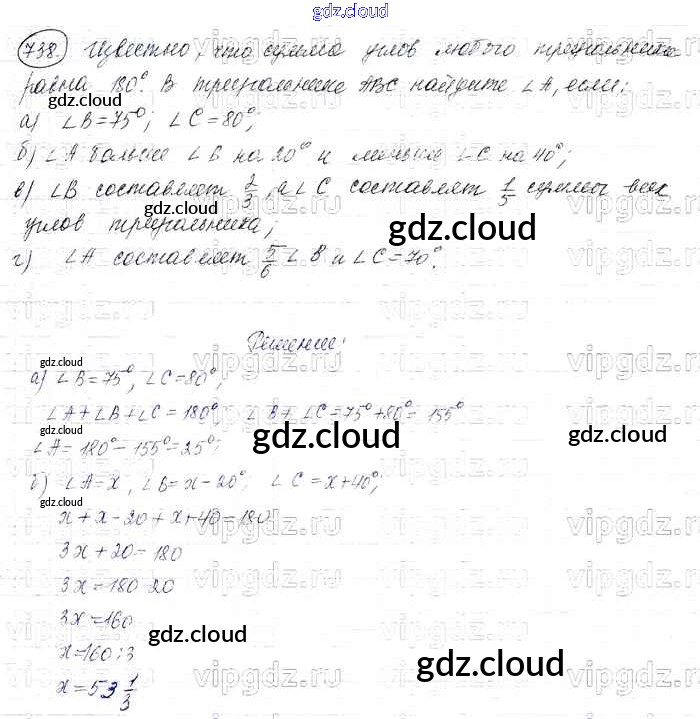 gdz.cloud
738. Известно, что сумма углов любого треугольника
равна 180°. В треугольнике ABC найдите ∠A, если:
gdz.cloud
а) ∠B=75°; ∠C=80°;
б) ∠A больше ∠B на 20° и меньше ∠C на 40°;
в) ∠B составляет 2/3, а ∠C составляет 1/5 суммы всех
gdz.cloud
углов треугольника;
gdz.cloud
г) ∠A составляет 5/6 ∠B и ∠C=70°.
Решение:
gdz.cloud
а) ∠B=75°, ∠C=80°;
gdz.cloud
∠A+∠B+∠C=180°; ∠B+∠C=75°+80°=155°
gdz.cloud gdz.cloud
∠A=180°-155°=25°;
б) ∠A=x, ∠B=x-20°; ∠C=x+40°;
gdz.cloud
x+x-20+x+40=180
3x+20=180
3x=180 20
3x=160
gdz.cloud
x=160:3
gdz.cloud
x=53 1/3
vipgdz.ru